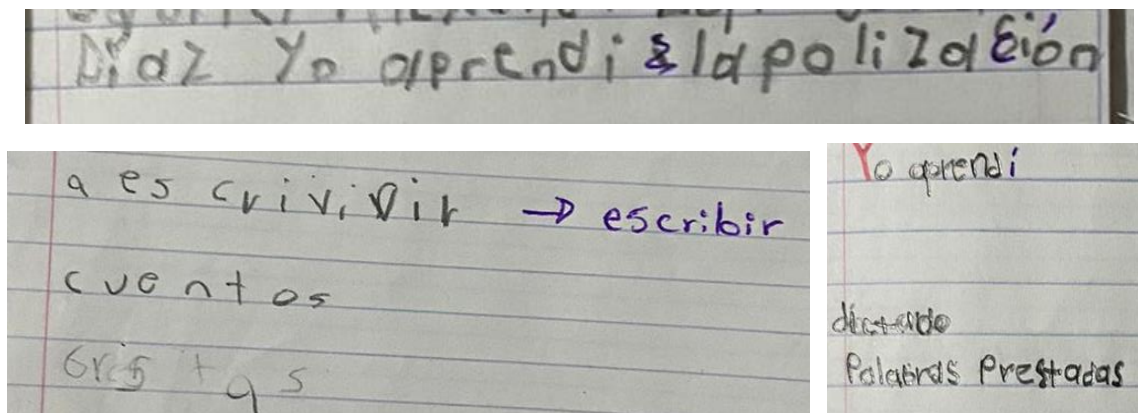 Diaz Yo aprendi la polización
a escrivivir → escribir
cuentos
Yo aprendí
dictado
Palabras Prestadas